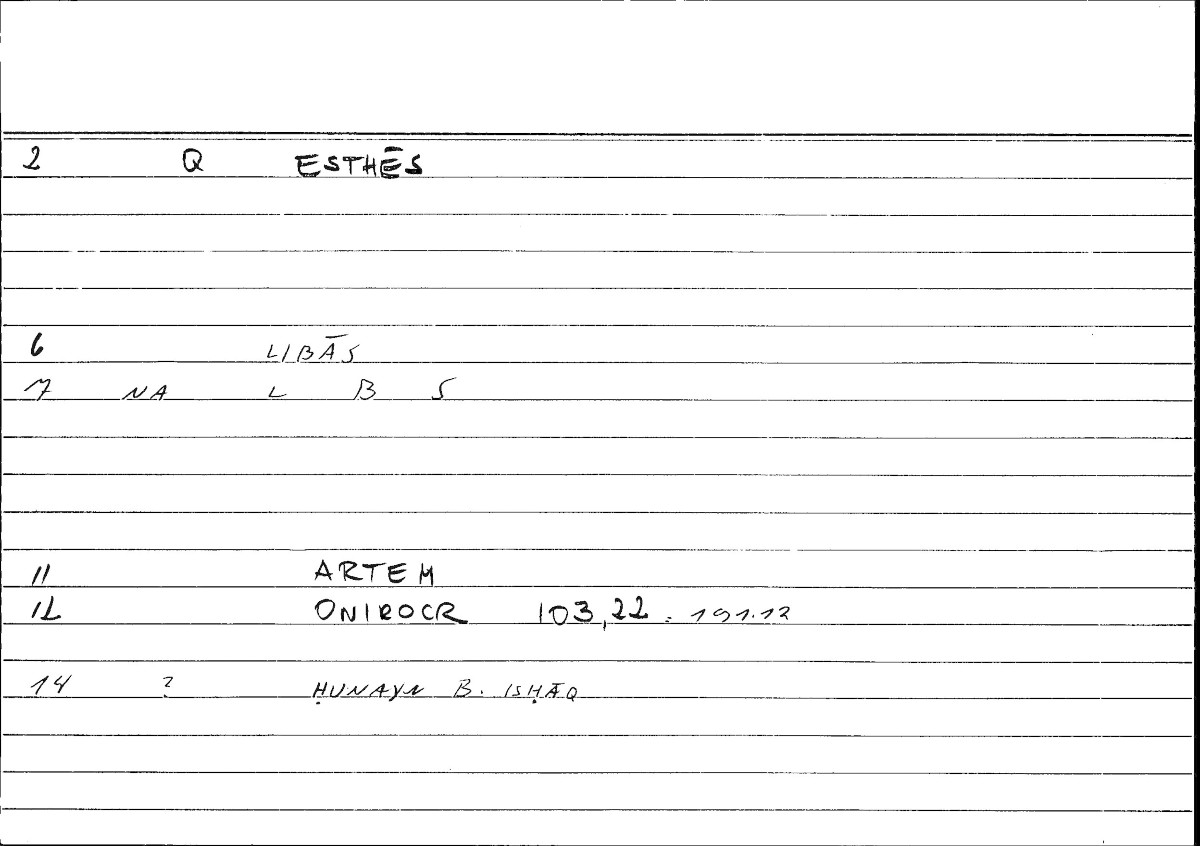 2 Q ESTHĒS
6 LIBĀS
7 NA L B S
11 ARTEM
12 ONIROCR 103,22 : 191.12
14 ? ḤUNAYN B. ISḤĀQ